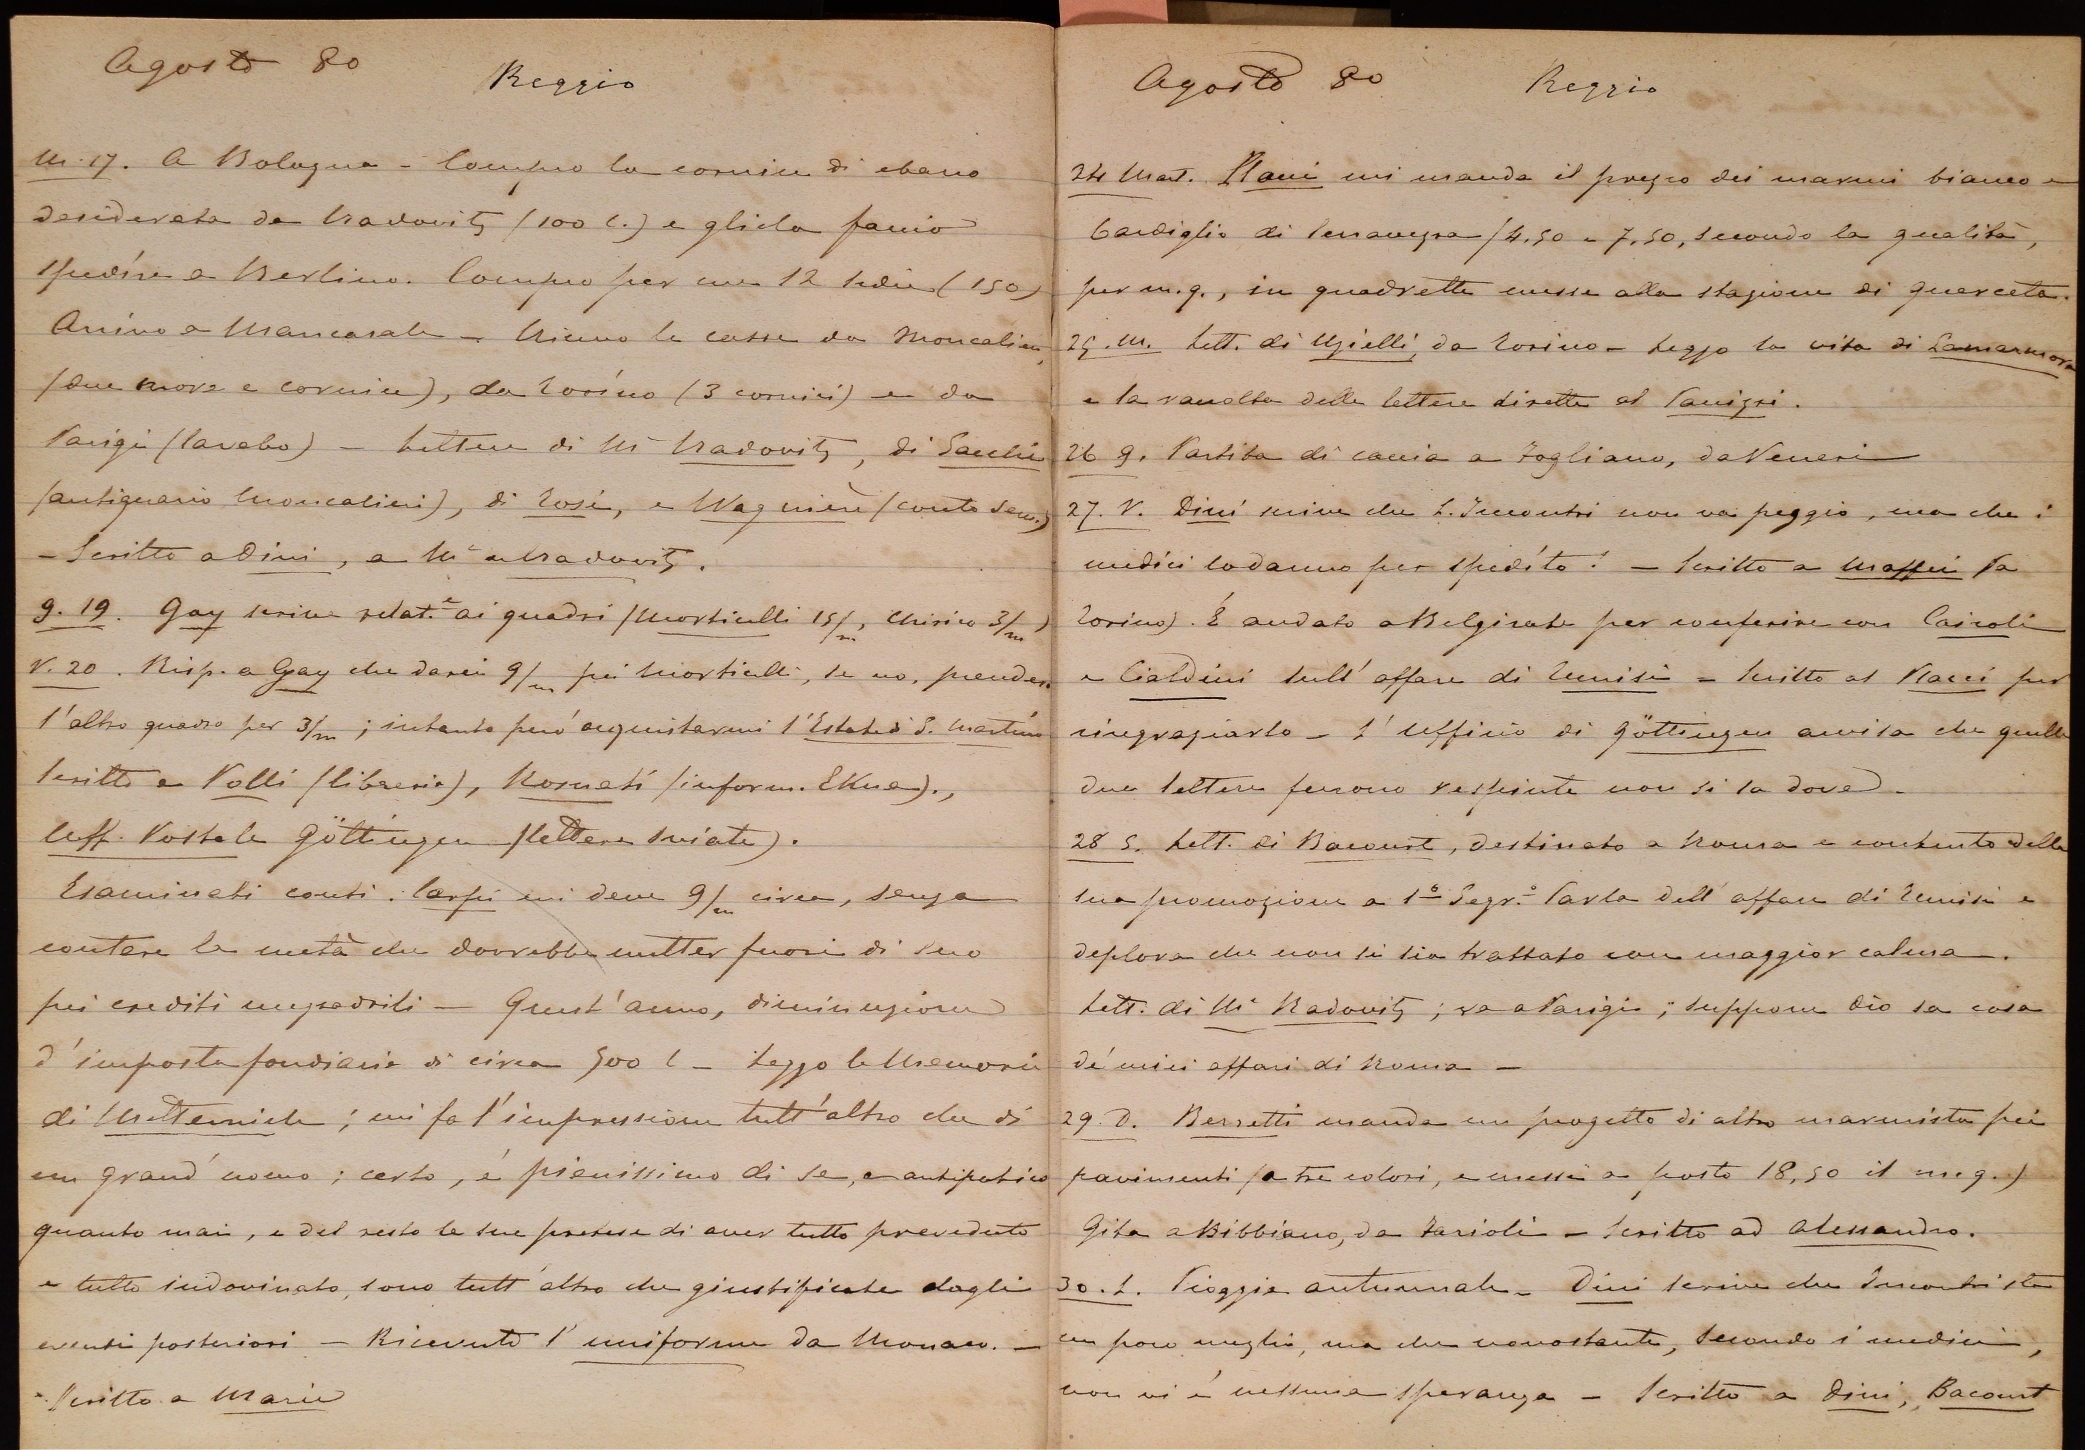 Agosto 80 Reggio
M. 17. A Bologna – Compro la cornice di ebano
desiderata da Radovitz (100 l.) e gliela faccio
spedire a Berlino. Compro per me 12 sedie (150)
Arrivo a Mancasale – Ricevo le casse da Moncalieri,
(due more e cornice), da Torino (3 cornici) e da
Parigi (lavabo) – Lettere di Me Radovitz, di Sacchi
(antiquario Moncalieri), di Tosi, e Wagnière (conto sem.)
– Scritto a Dini, a Me Radovitz.
g. 19. Gay scrive relat.e ai quadri (Morticelli 15/m, Chirico 3/m)
V. 20. Risp. a Gay che darei 9/m pei Morticelli, se no, prendere
l'altro quadro per 3/m; intanto però acquistarmi l'Estate di S. Martino
Scritto a Polli (libreria), Rosnati (inform. Ekna).,
Uff. Postale Göttingen (lettere sviate).
Esaminati conti. Carpi mi deve 9/m circa, senza
contare la metà che dovrebbe metter fuori di suo
pei crediti – Quest'anno, diminuzione
d'imposta fondiaria di circa 500 l – Leggo le Memorie
di Metternich; mi fa l'impressione tutt'altro che di
un grand'uomo; certo, è pienissimo di se, e antipatico
quanto mai, e del resto le sue pretese di aver tutto preveduto
e tutto indovinato, sono tutt'altro che giustificate dagli
eventi posteriori – Ricevuto l'uniforme da Monaco. –
– Scritto a Marie
Agosto 80 Reggio
24 Mart. Placci mi manda il prezzo dei marmi bianco e
bardiglio di Serravezza (4.50 e 7.50, secondo la qualità,
per m.q., in quadrette messe alla stazione di Querceta.
25. M. Lett. di Uzielli, da Torino – Leggo la vita di Lamarmora
e la raccolta delle lettere dirette al Panizzi.
26 g. Partita di caccia a Fogliano, da Veneri
27. V. Dini scrive che L. Incontri non va peggio, ma che i
medici lo danno per spedito! – Scritto a Maffei (a
Torino). È andato a Belgirate per conferire con Cairoli
e Cialdini sull'affare di Tunisi – Scritto al Placci per
ringraziarlo – L'Ufficio di Göttingen avvisa che quelle
due lettere furono respinte non si sa dove.
28 S. Lett. di Bacourt, destinato a Roma e contento della
sua promozione a 1° Segr.° Parla dell'affare di Tunisi e
deplora che non si sia trattato con maggior calma.
Lett. di Me Radovitz; va a Parigi; suppone Dio sa cosa
de' miei affari di Roma –
29. D. Berretti manda un progetto di altro marmista pei
pavimenti (a tre colori, e messi a posto 18,50 il m.q.)
Gita a Bibbiano, da Farioli – Scritto ad Alessandro.
30. L. Pioggia autunnale – Dini scrive che Incontri sta
un poco meglio, ma che nonostante, secondo i medici,
non vi è nessuna speranza – Scritto a Dini, Bacourt